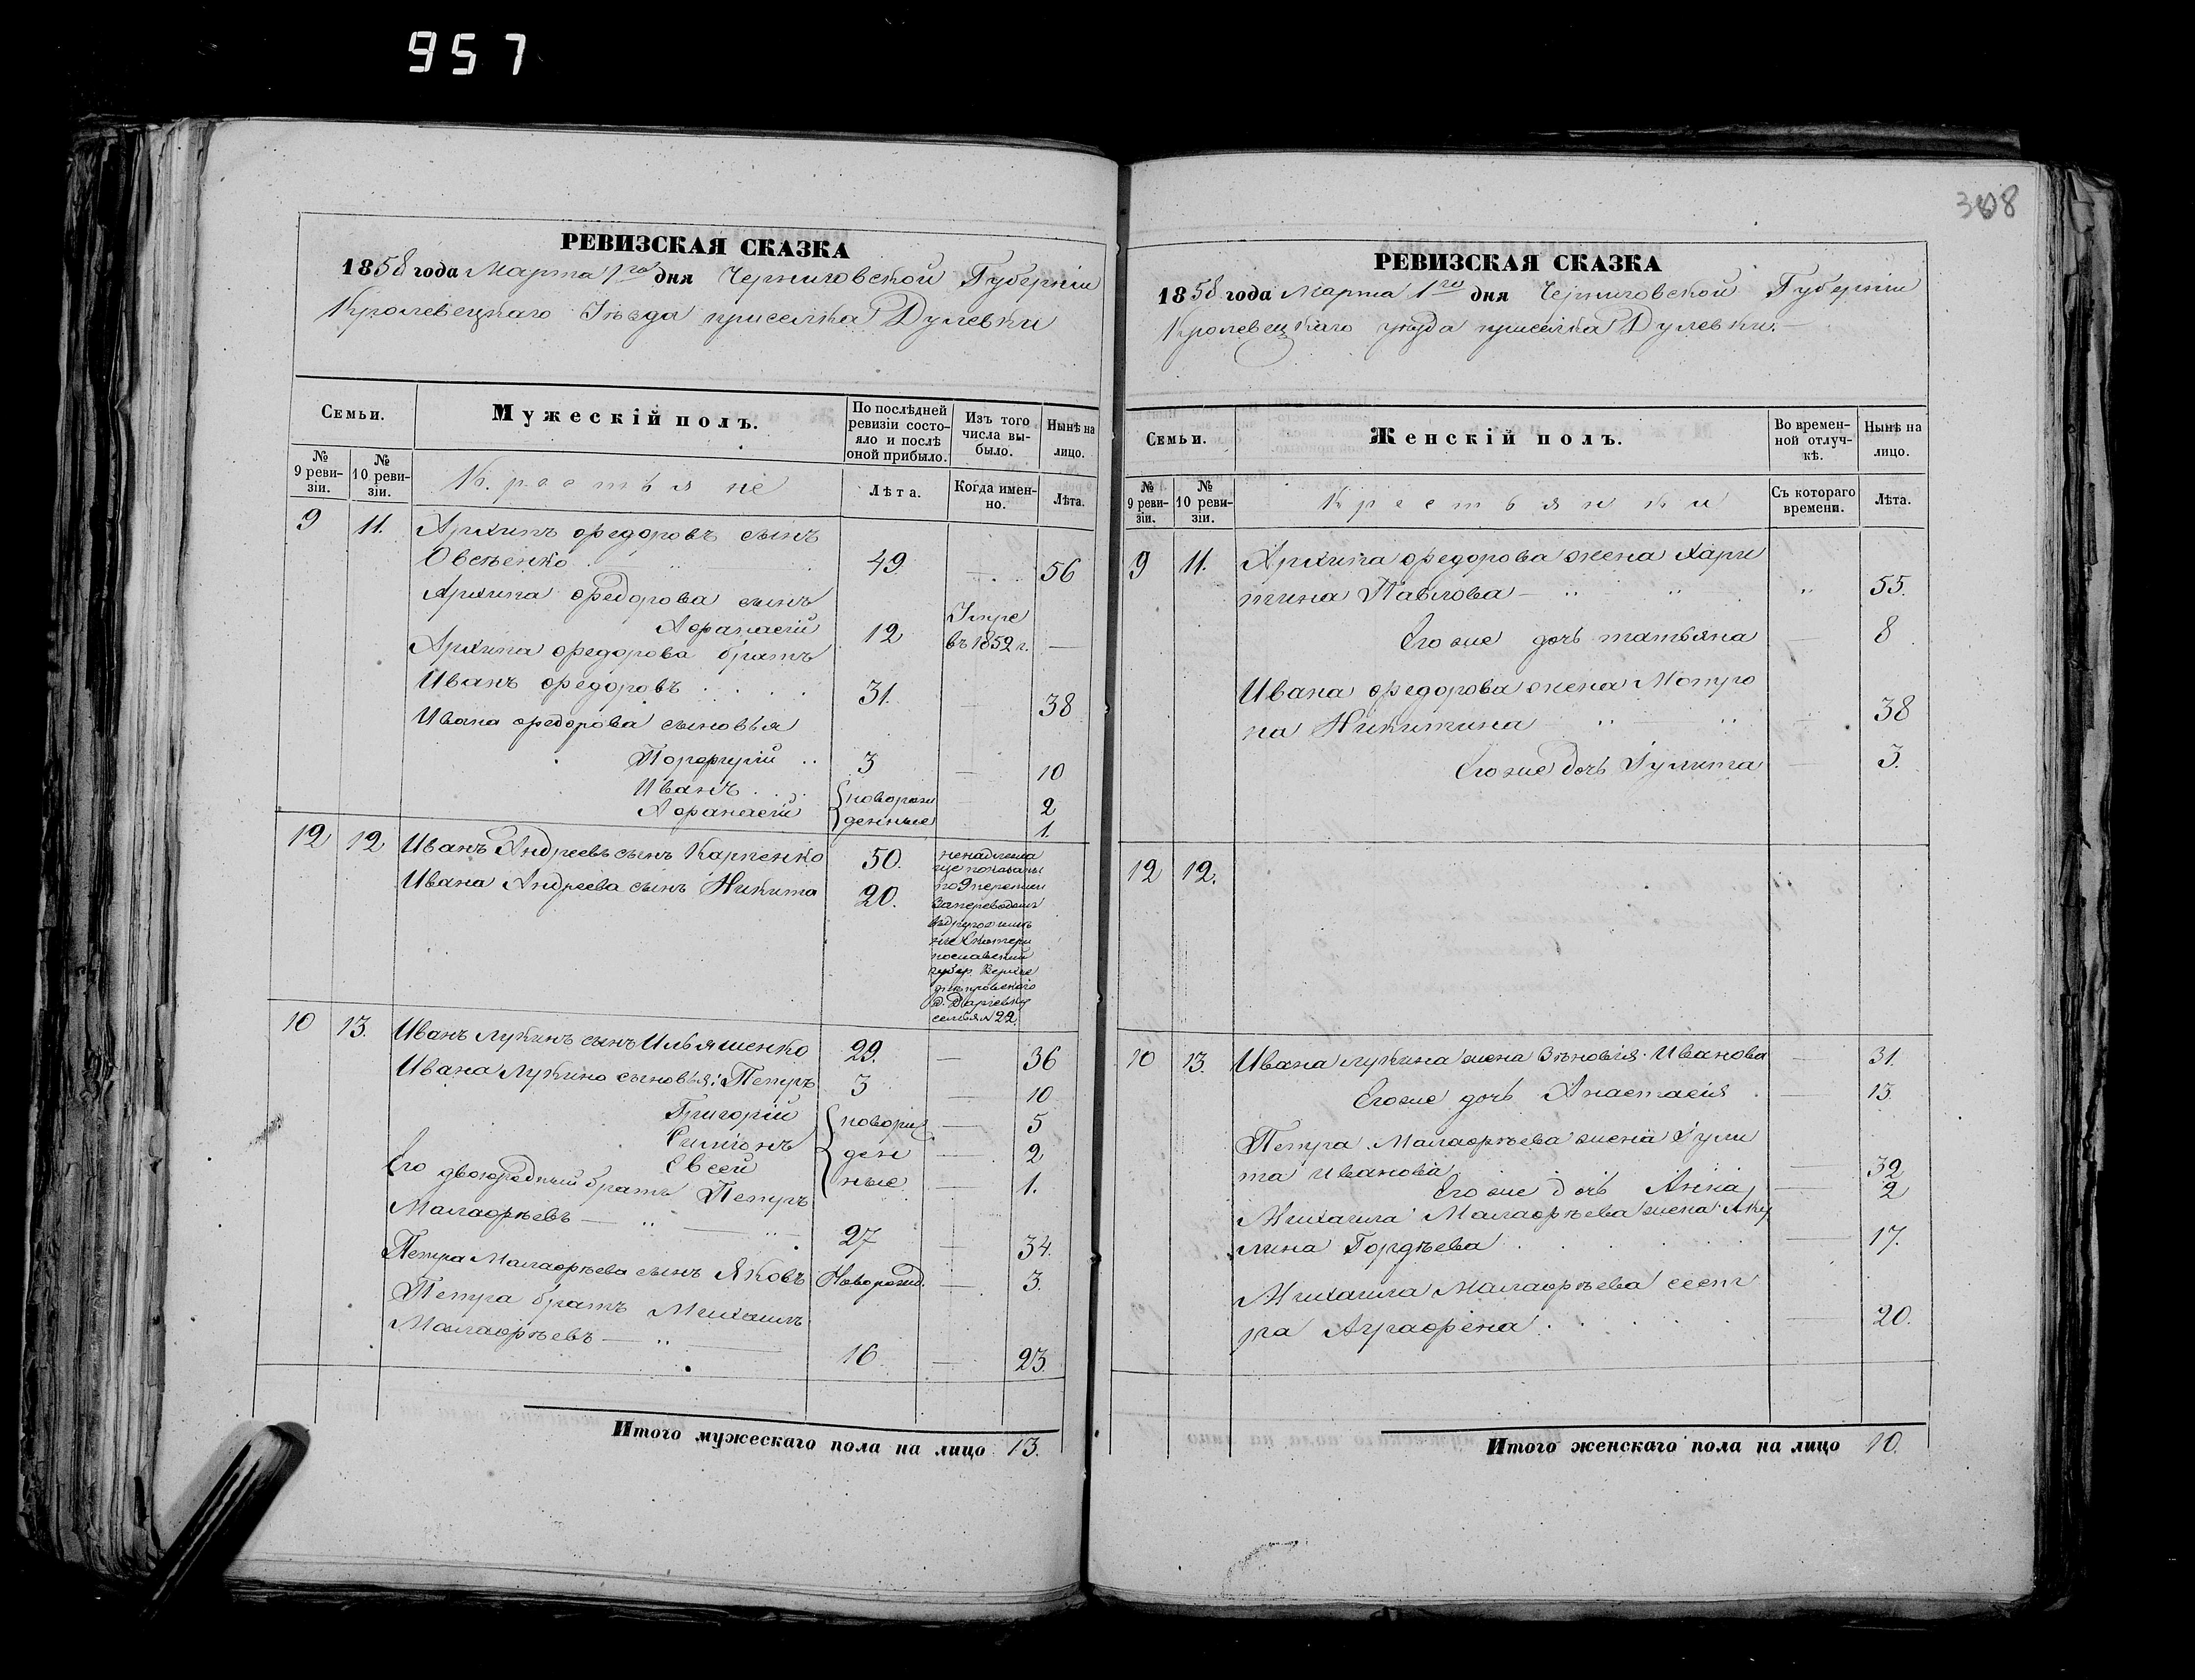 957
308
РЕВИЗСКАЯ СКАЗКА
1858 года Марта 1го дня Черниговской Губерніи
Кролевецкаго Уезда приселка Дулевки
Семьи.
Мужескій полъ.
По послѣдней ревизіи состояло и послѣ оной прибыло.
Изъ того числа выбыло.
Нынѣ на лицо.
№ 9 ревизіи.
№ 10 ревизіи.
Крестьяне
Лѣта.
Когда именно.
Лѣта.
9 11. Архипъ Федоровъ сынъ
Овсѣенко 49 — 56
Архипа Федорова сынъ
Афанасій 12 Умре въ 1852 г. —
Архипа Федорова братъ
Иванъ Федоровъ 31. — 38
Ивана Федорова сыновья
Порфирій 3 — 10
Иванъ {новорож 2
Афанасій {денные 1.
12 12 Иванъ Андреевъ сынъ Карпенко 50.
Ивана Андреева сынъ Никита 20.
показаны
семья № 22.
10 13. Иванъ Лукинъ сынъ Ильяшенко 29. — 36
Ивана Лукина сыновья: Петръ 3 — 10
Григорій {новорож — 5
Симіонъ {ден — 2
Евсей {ные — 1.
Его двоюродный братъ Петръ
Малафѣевъ — 27 — 34.
Петра Малафѣева сынъ Яковъ Новорожд. — 3.
Петра братъ Михаилъ
Малафѣевъ — 16 — 23.
Итого мужескаго пола на лицо 13.
РЕВИЗСКАЯ СКАЗКА
1858 года Марта 1го дня Черниговской Губерніи
Кролевецкаго уезда приселка Дулевки.—
Семьи.
Женскій полъ.
Во временной отлучкѣ.
Нынѣ на лицо.
№ 9 ревизіи.
№ 10 ревизіи.
Крестьянки
Съ котораго времени.
Лѣта.
9 11. Архипа Федорова жена Хари
тина Павлова — 55.
Его же дочь татьяна — 8
Ивана Федорова жена Мотро
на Никитина 38
Его же дочь Іулита — 3.
12 12.
10 13. Ивана Лукина жена Зѣновія Иванова — 31.
Его же дочь Анастасія — 13.
Петра Малафѣева жена Іули
та Иванова 32
Его же дочь Анна — 2
Михаила Малафѣева жена Аку
лина Гордѣева — 17.
Михаила Малафѣева сест
ра Аграфена — 20.
Итого женскаго пола на лицо 10.